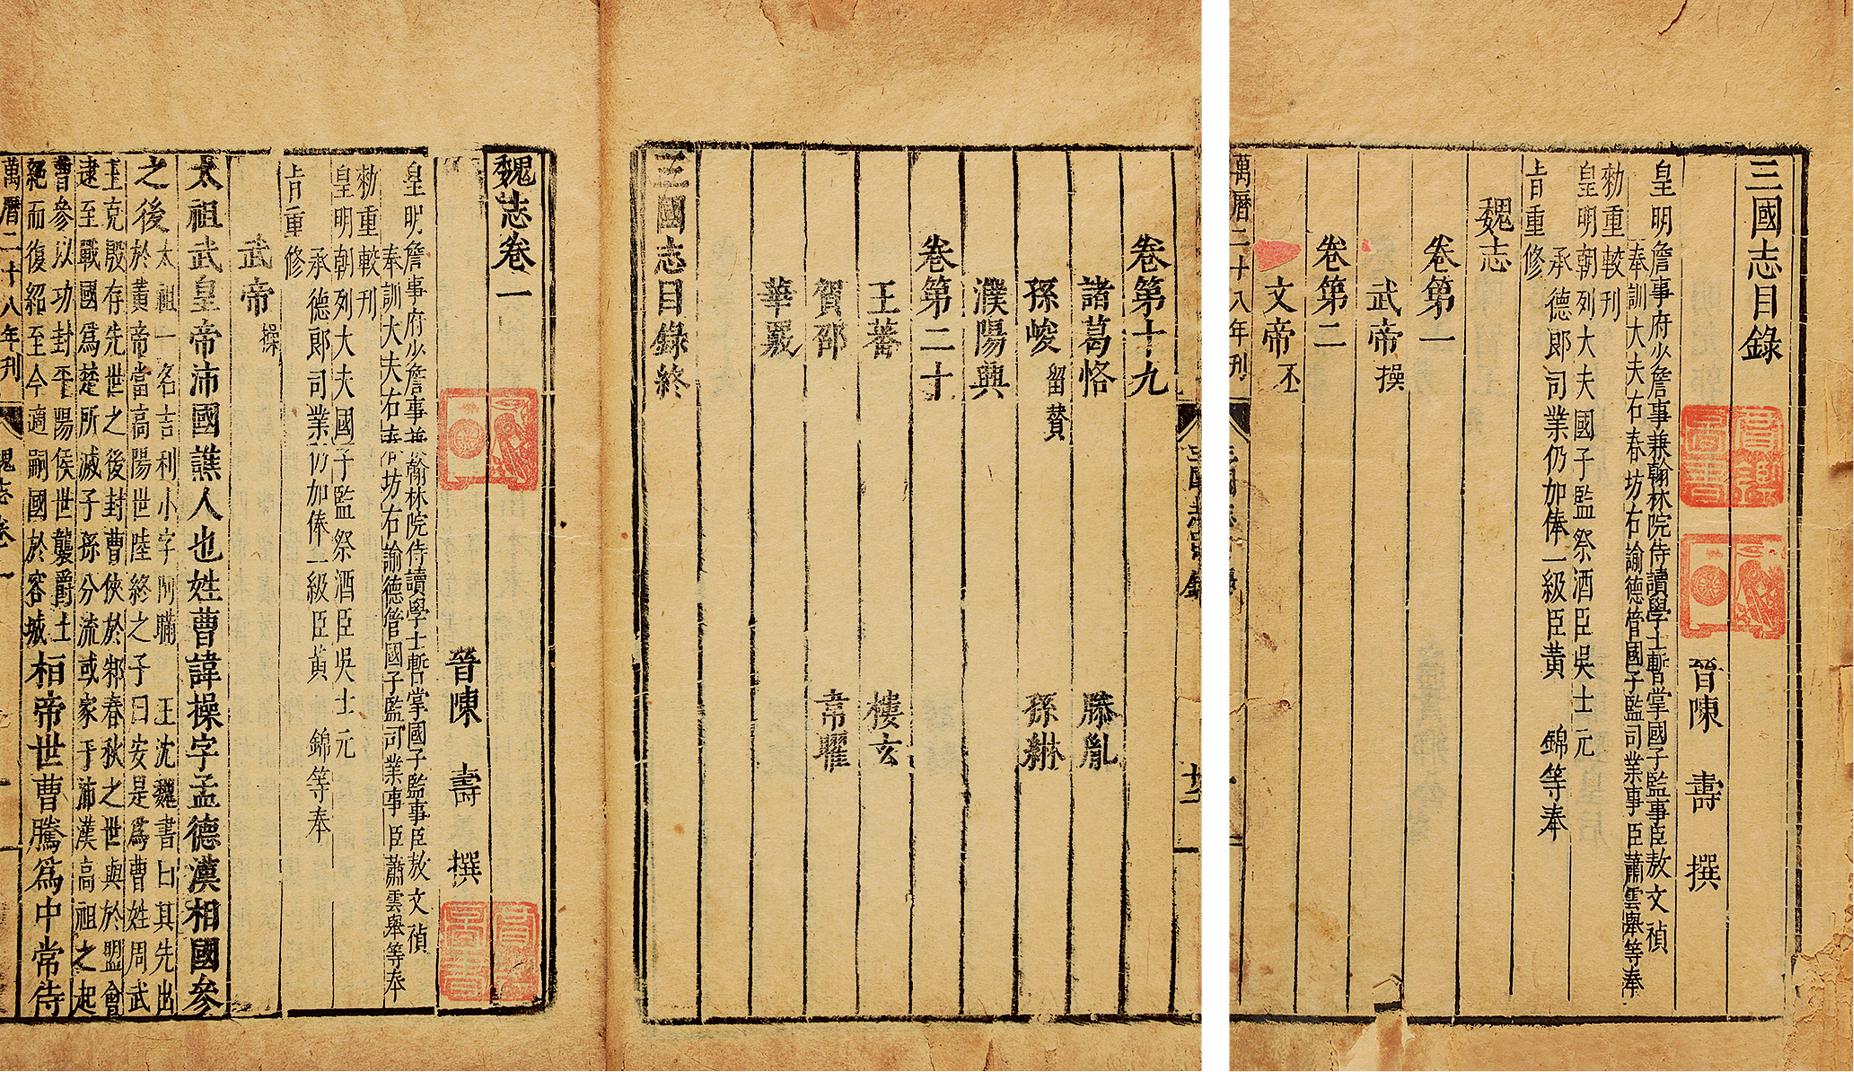 三國志目錄
晉陳　壽　撰
皇明詹事府少詹事兼翰林院侍讀學士暫掌國子監事臣敖文禎
奉訓大夫右春坊右諭德管國子監司業事臣蕭雲舉等奉
勑重較刊
皇明朝列大夫國子監祭酒臣吳士元
承德郎司業仍加俸一級臣黃　錦等奉
旨重修
魏志
卷第一
武帝操
卷第二
文帝丕
萬曆二十八年刊
卷第十九
諸葛恪　滕胤
孫峻留贊　孫綝
濮陽興
卷第二十
王蕃　樓玄
賀邵　韋曜
華覈
三國志目錄終
魏志卷一
晉陳　壽　撰
皇明詹事府少詹事兼翰林院侍讀學士暫掌國子監事臣敖文禎
奉訓大夫右春坊右諭德管國子監司業事臣蕭雲舉等奉
勑重較刊
皇明朝列大夫國子監祭酒臣吳士元
承德郎司業仍加俸一級臣黃　錦等奉
旨重修
武帝操
太祖武皇帝沛國譙人也姓曹諱操字孟德漢相國參
之後
太祖一名吉利小字阿瞞　王沈魏書曰其先出
於黃帝當高陽世陸終之子曰安是爲曹姓周武
王克殷存先世之後封曹俠於邾春秋之世與於盟會
逮至戰國爲楚所滅子孫分流或家于沛漢高祖之起
曹參以功封平陽侯世襲爵土
絕而復紹至今適嗣國於容城
桓帝世曹騰爲中常侍
萬曆二十八年刊
魏志卷一